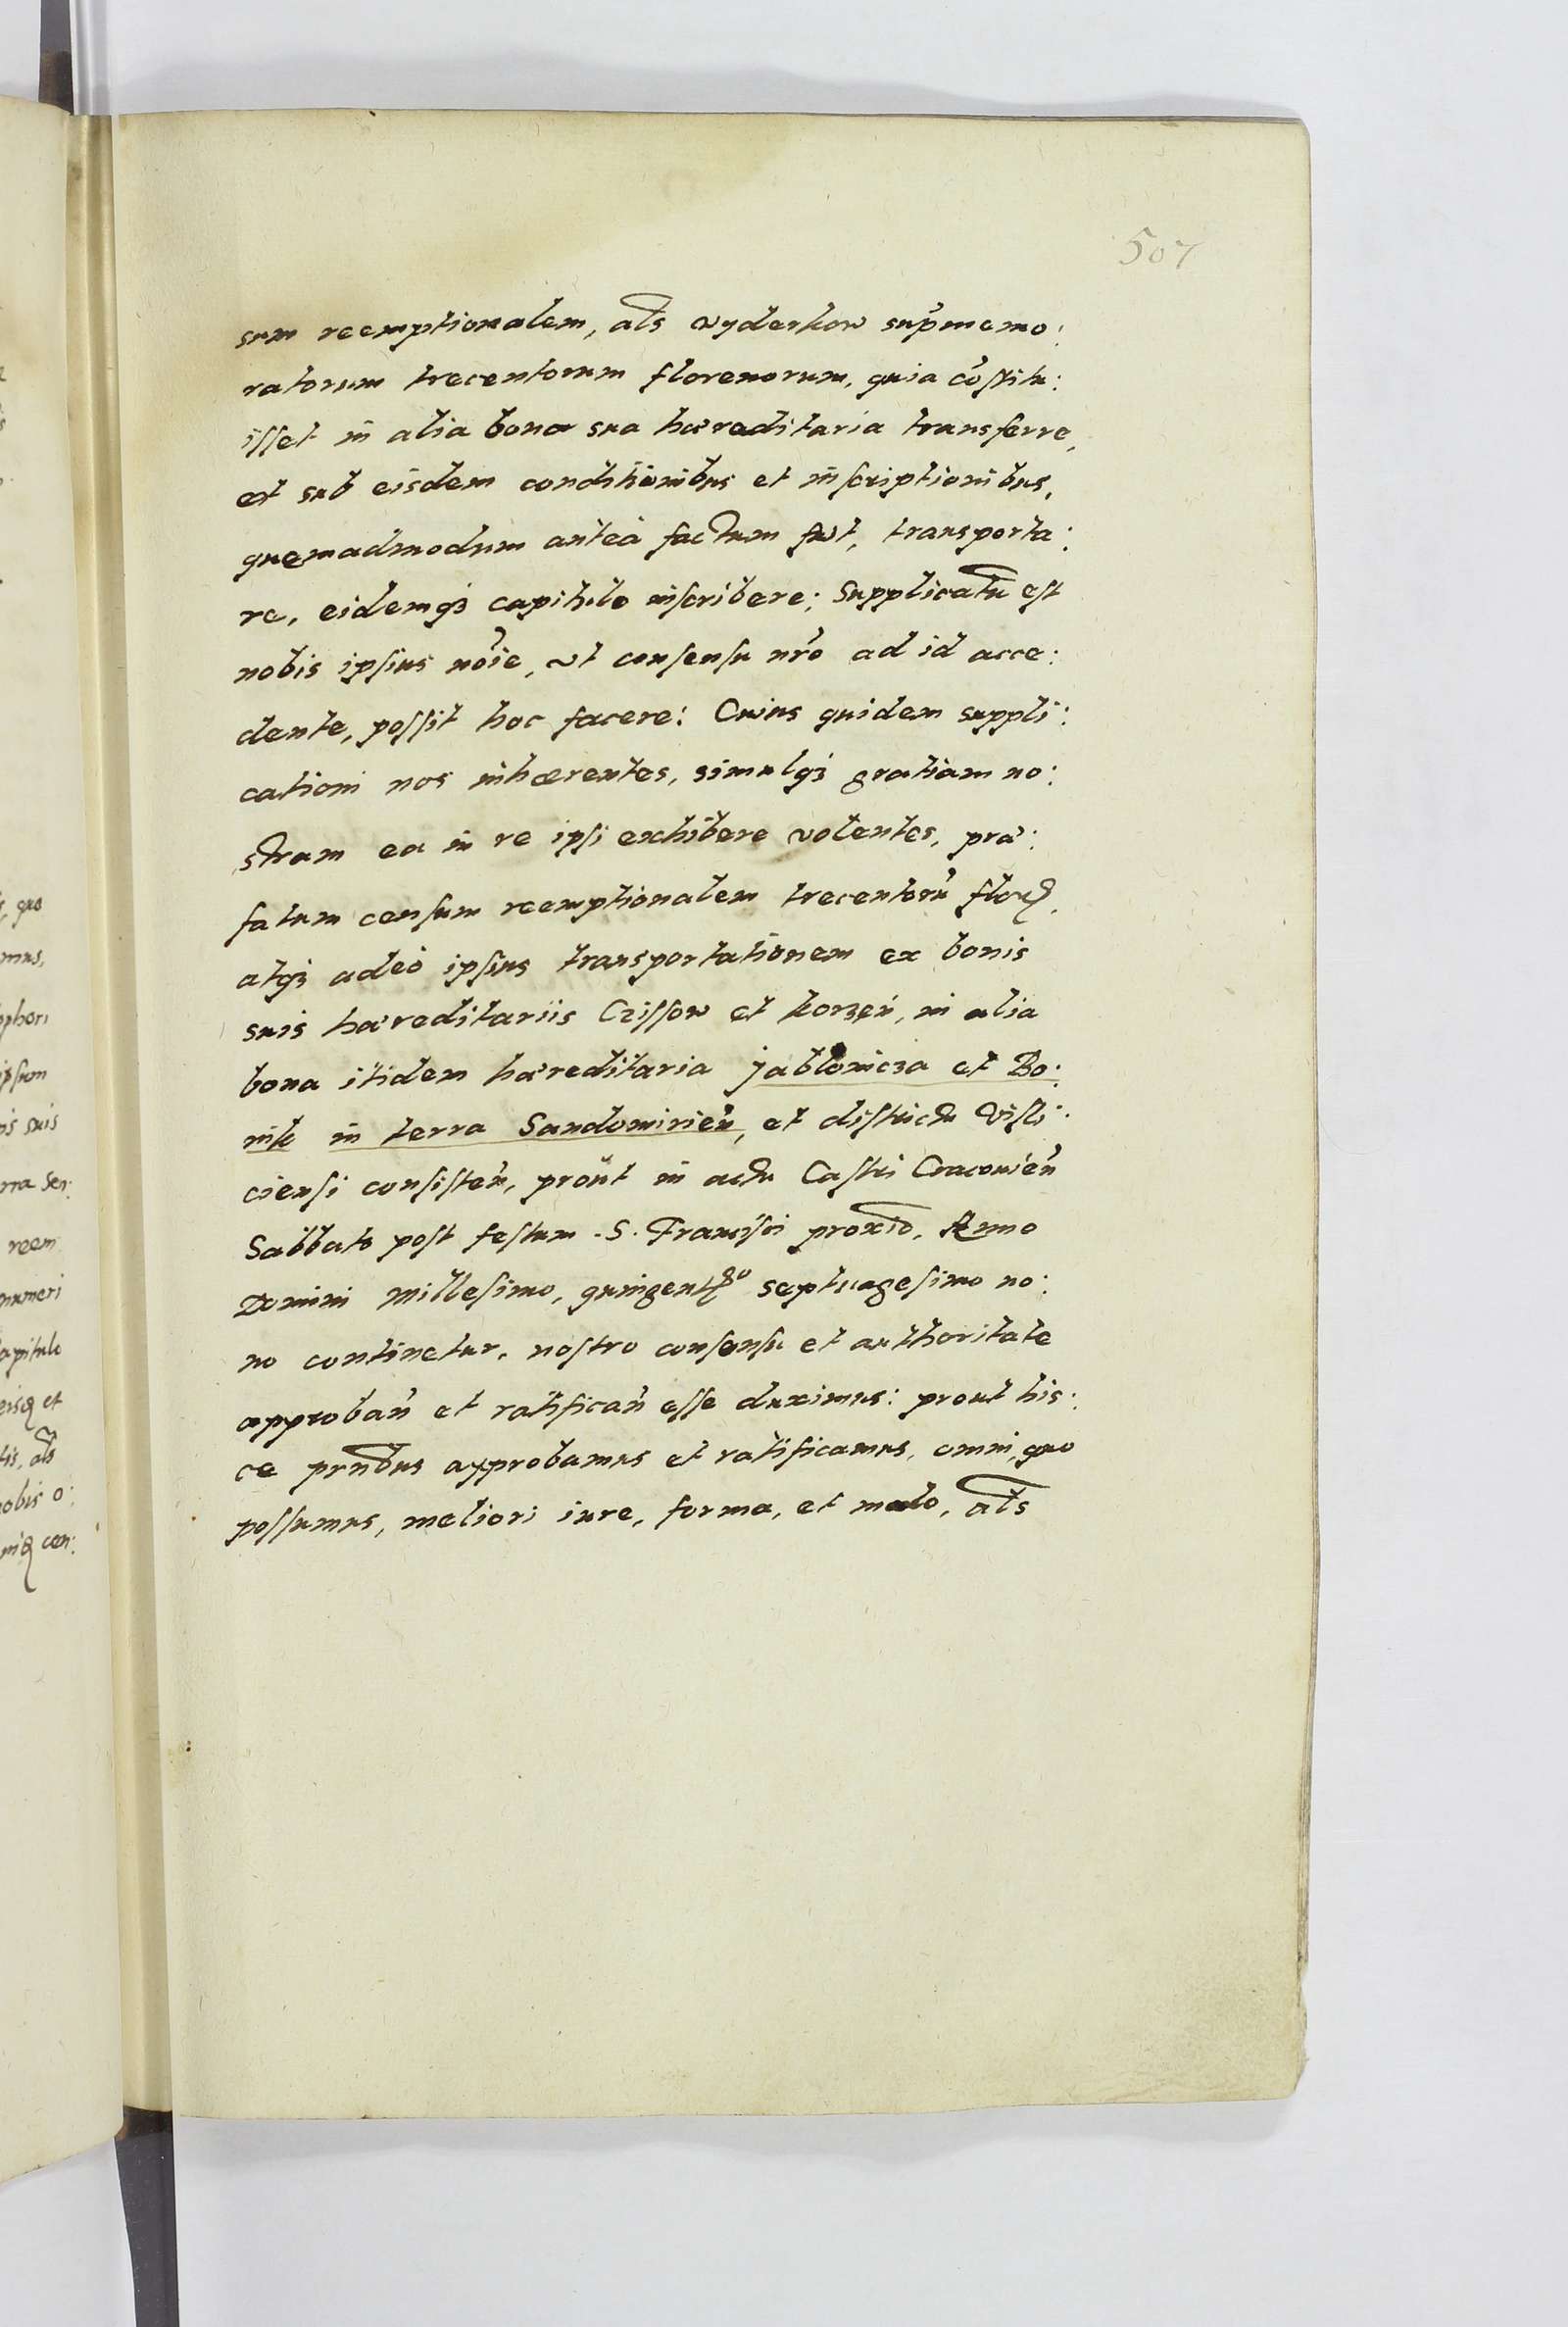 507
sum reemptionalem, als wyderkow supmemo:
ratorum trecentorum florenorum, quia cōstitu:
isset in alia bona sua hæreditaria transferre,
et sub eisdem conditionibus et inscriptionibus,
quemadmodum anteà factum fuit, transporta:
re, eidemq3 capitulo inscribere; Supplicatū est
nobis ipsius noīe, ut consensu nro ad id acce:
dente, possit hoc facere: Cuius quidem suppli:
cationi nos inhærentes, simulq3 gratiam no:
stram ea in re ipsi exhibere volentes, præ:
fatum censum reemptionalem trecentorū flor,
atq3 adeò ipsius transportationem ex bonis
suis hæreditariis Czissow et korzen, in alia
bona itidem hæreditaria Jablonicza et Bo:
nisk in terra Sandomirien, et districtu Visli:
ciensi consisten, proùt in actu Castri Cracovien
Sabbato post festum .S. Francisci proxīo, Anno
Domini Millesimo, quingent° septuagesimo no:
no continetur, nostro consensu et authoritate
approban et ratifican esse duximus: prout his:
ce prntibus approbamus et ratificamus, omni, quo
possumus, meliori iure, forma, et modo, als
quo
mus,
ophori
ipsum
is suis
rra Sen:
reem
numeri
apitulo
eisq et
tis, als
nobis o:
miq cen: